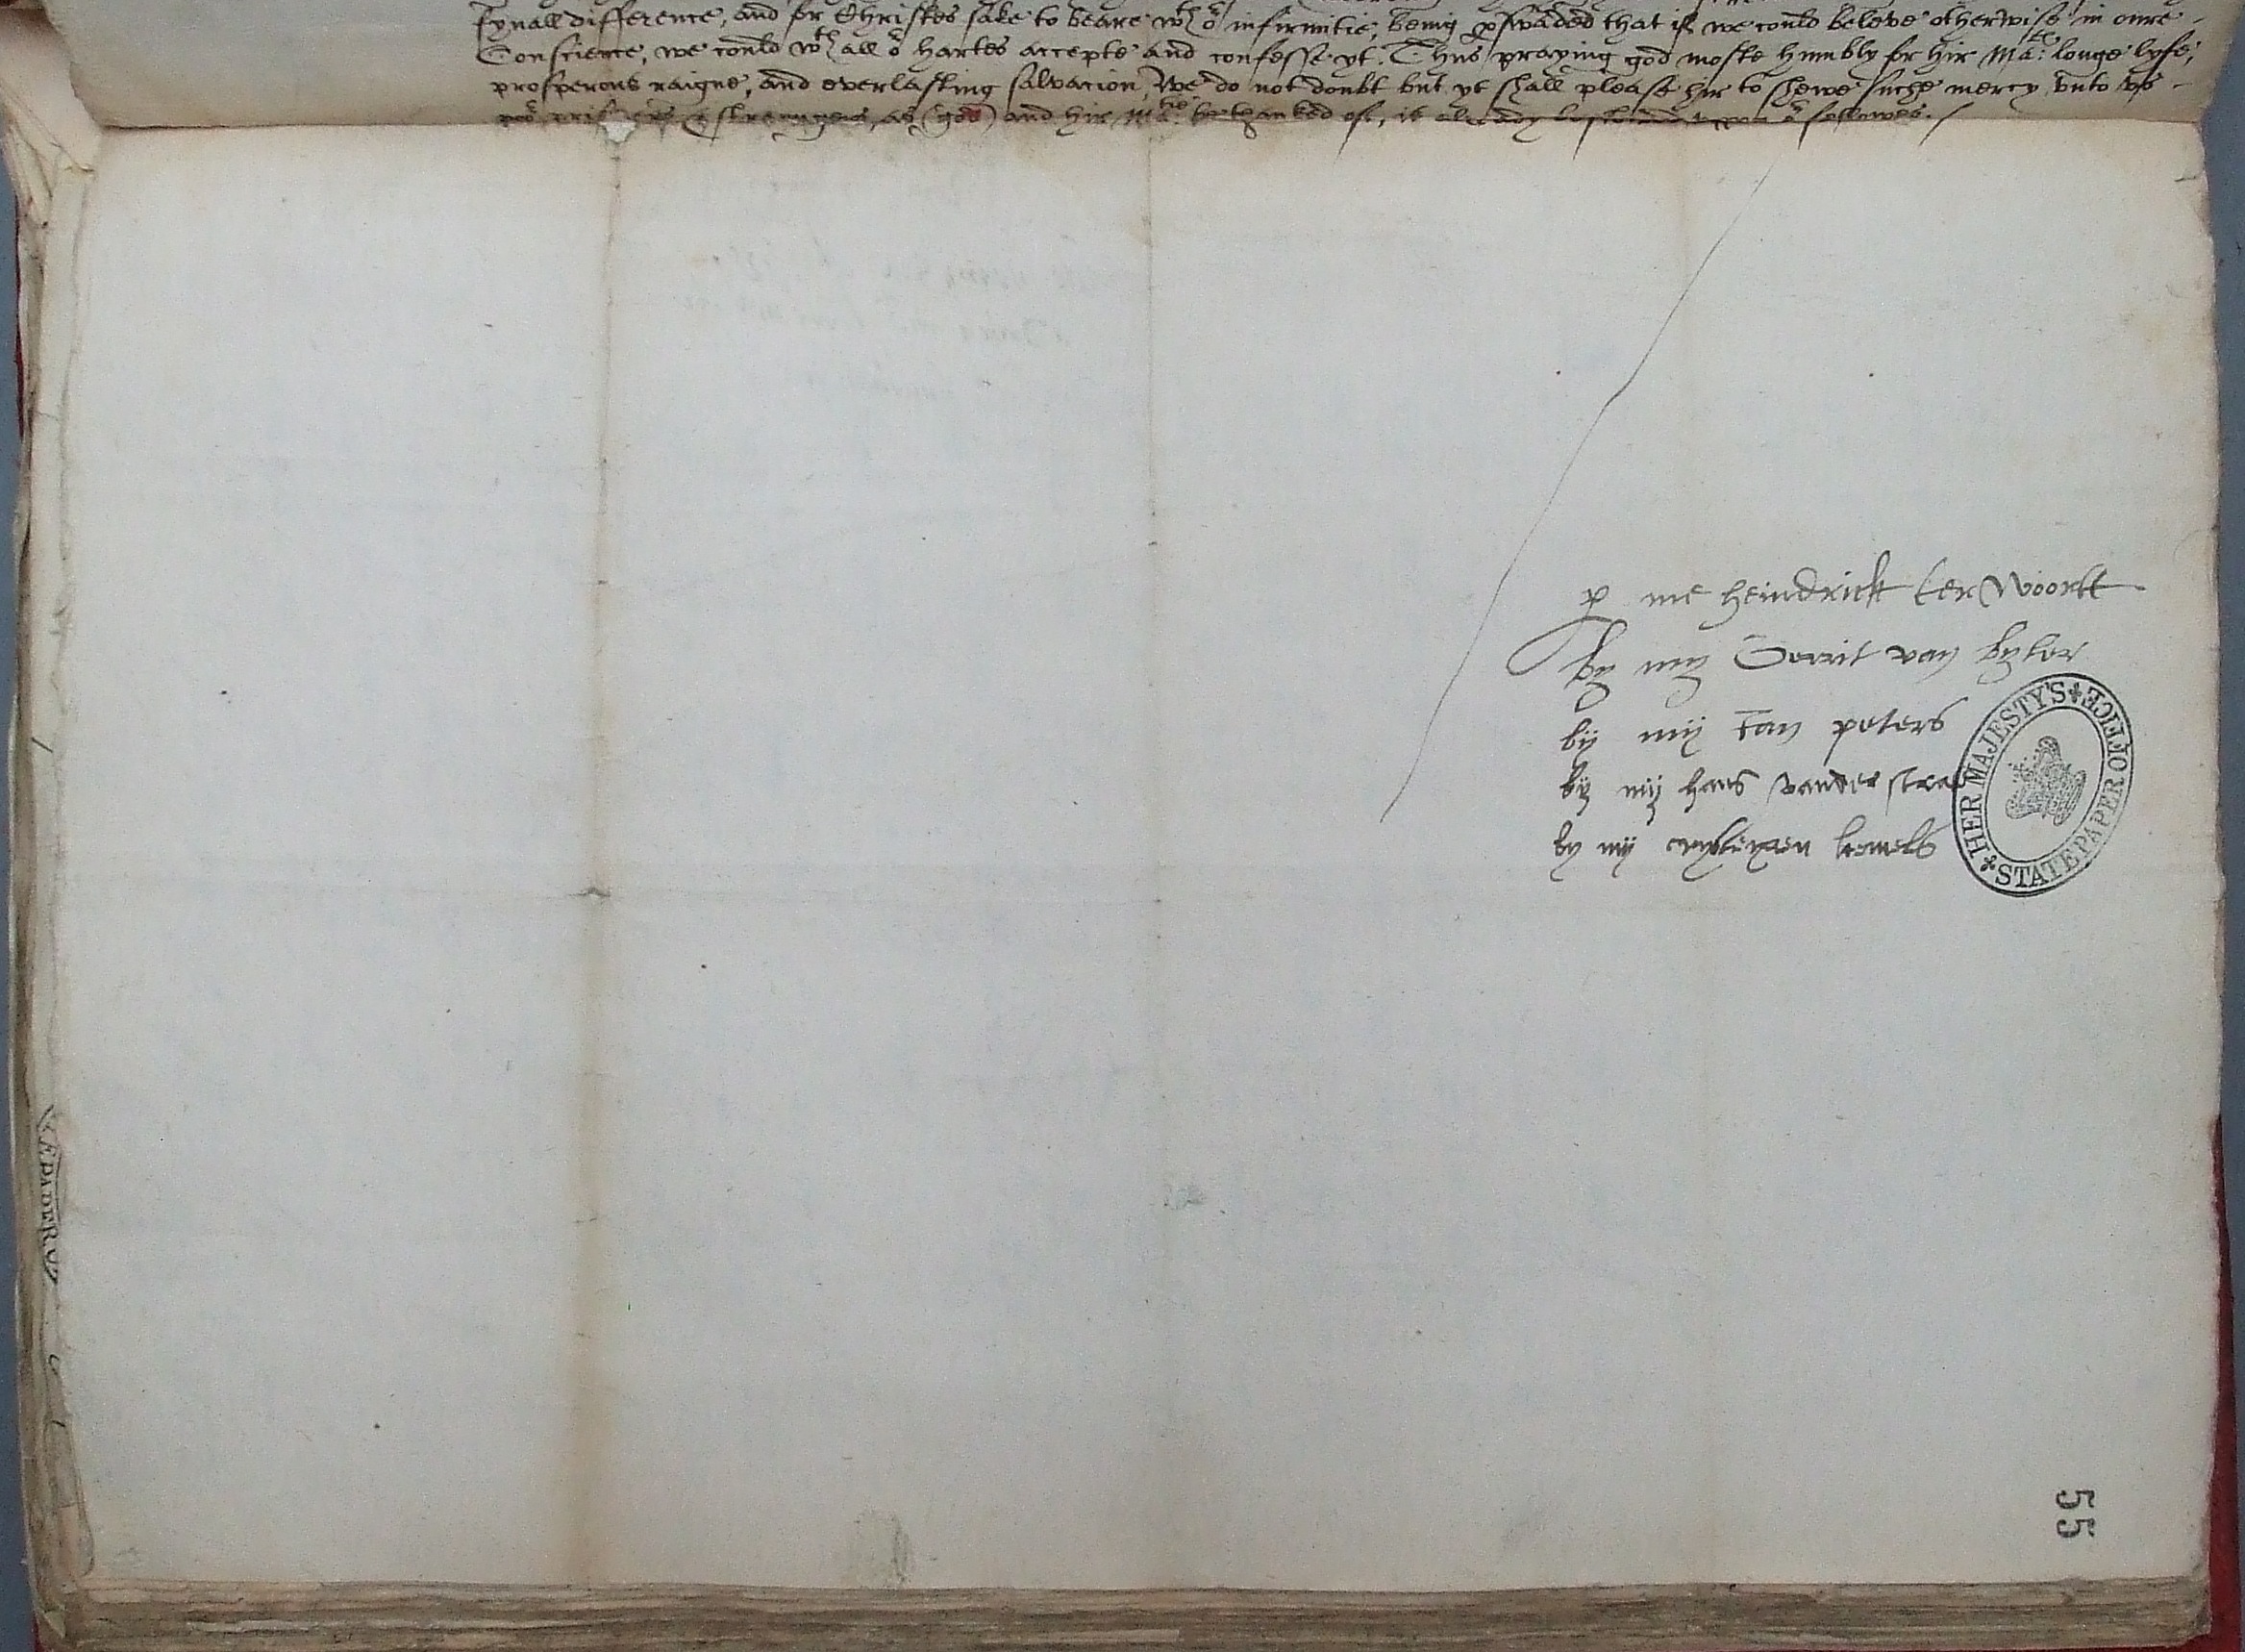 fynall difference, and for Christes sake to beare wth or infirmitie, being pswaded that if we could beleve otherwise in oure
Conscience, we could wth all or hartes accepte and confesse yt. Thus praying god moste humbly for hir Matie: longe lyfe,
prosperous raigne, and everlasting salvacion, We do not doubt but yt shall please hir to shewe suche mercy unto us
as (god) and hir Matie: be thanked of, is already uppon or fellowes.
p me heindrick ter woortt
by my Gerrit van byler
bÿ mÿ Jan peters
by mÿ hans vander stra
by mÿ kemels
HER MAJESTY'S STATE PAPER OFFICE
55